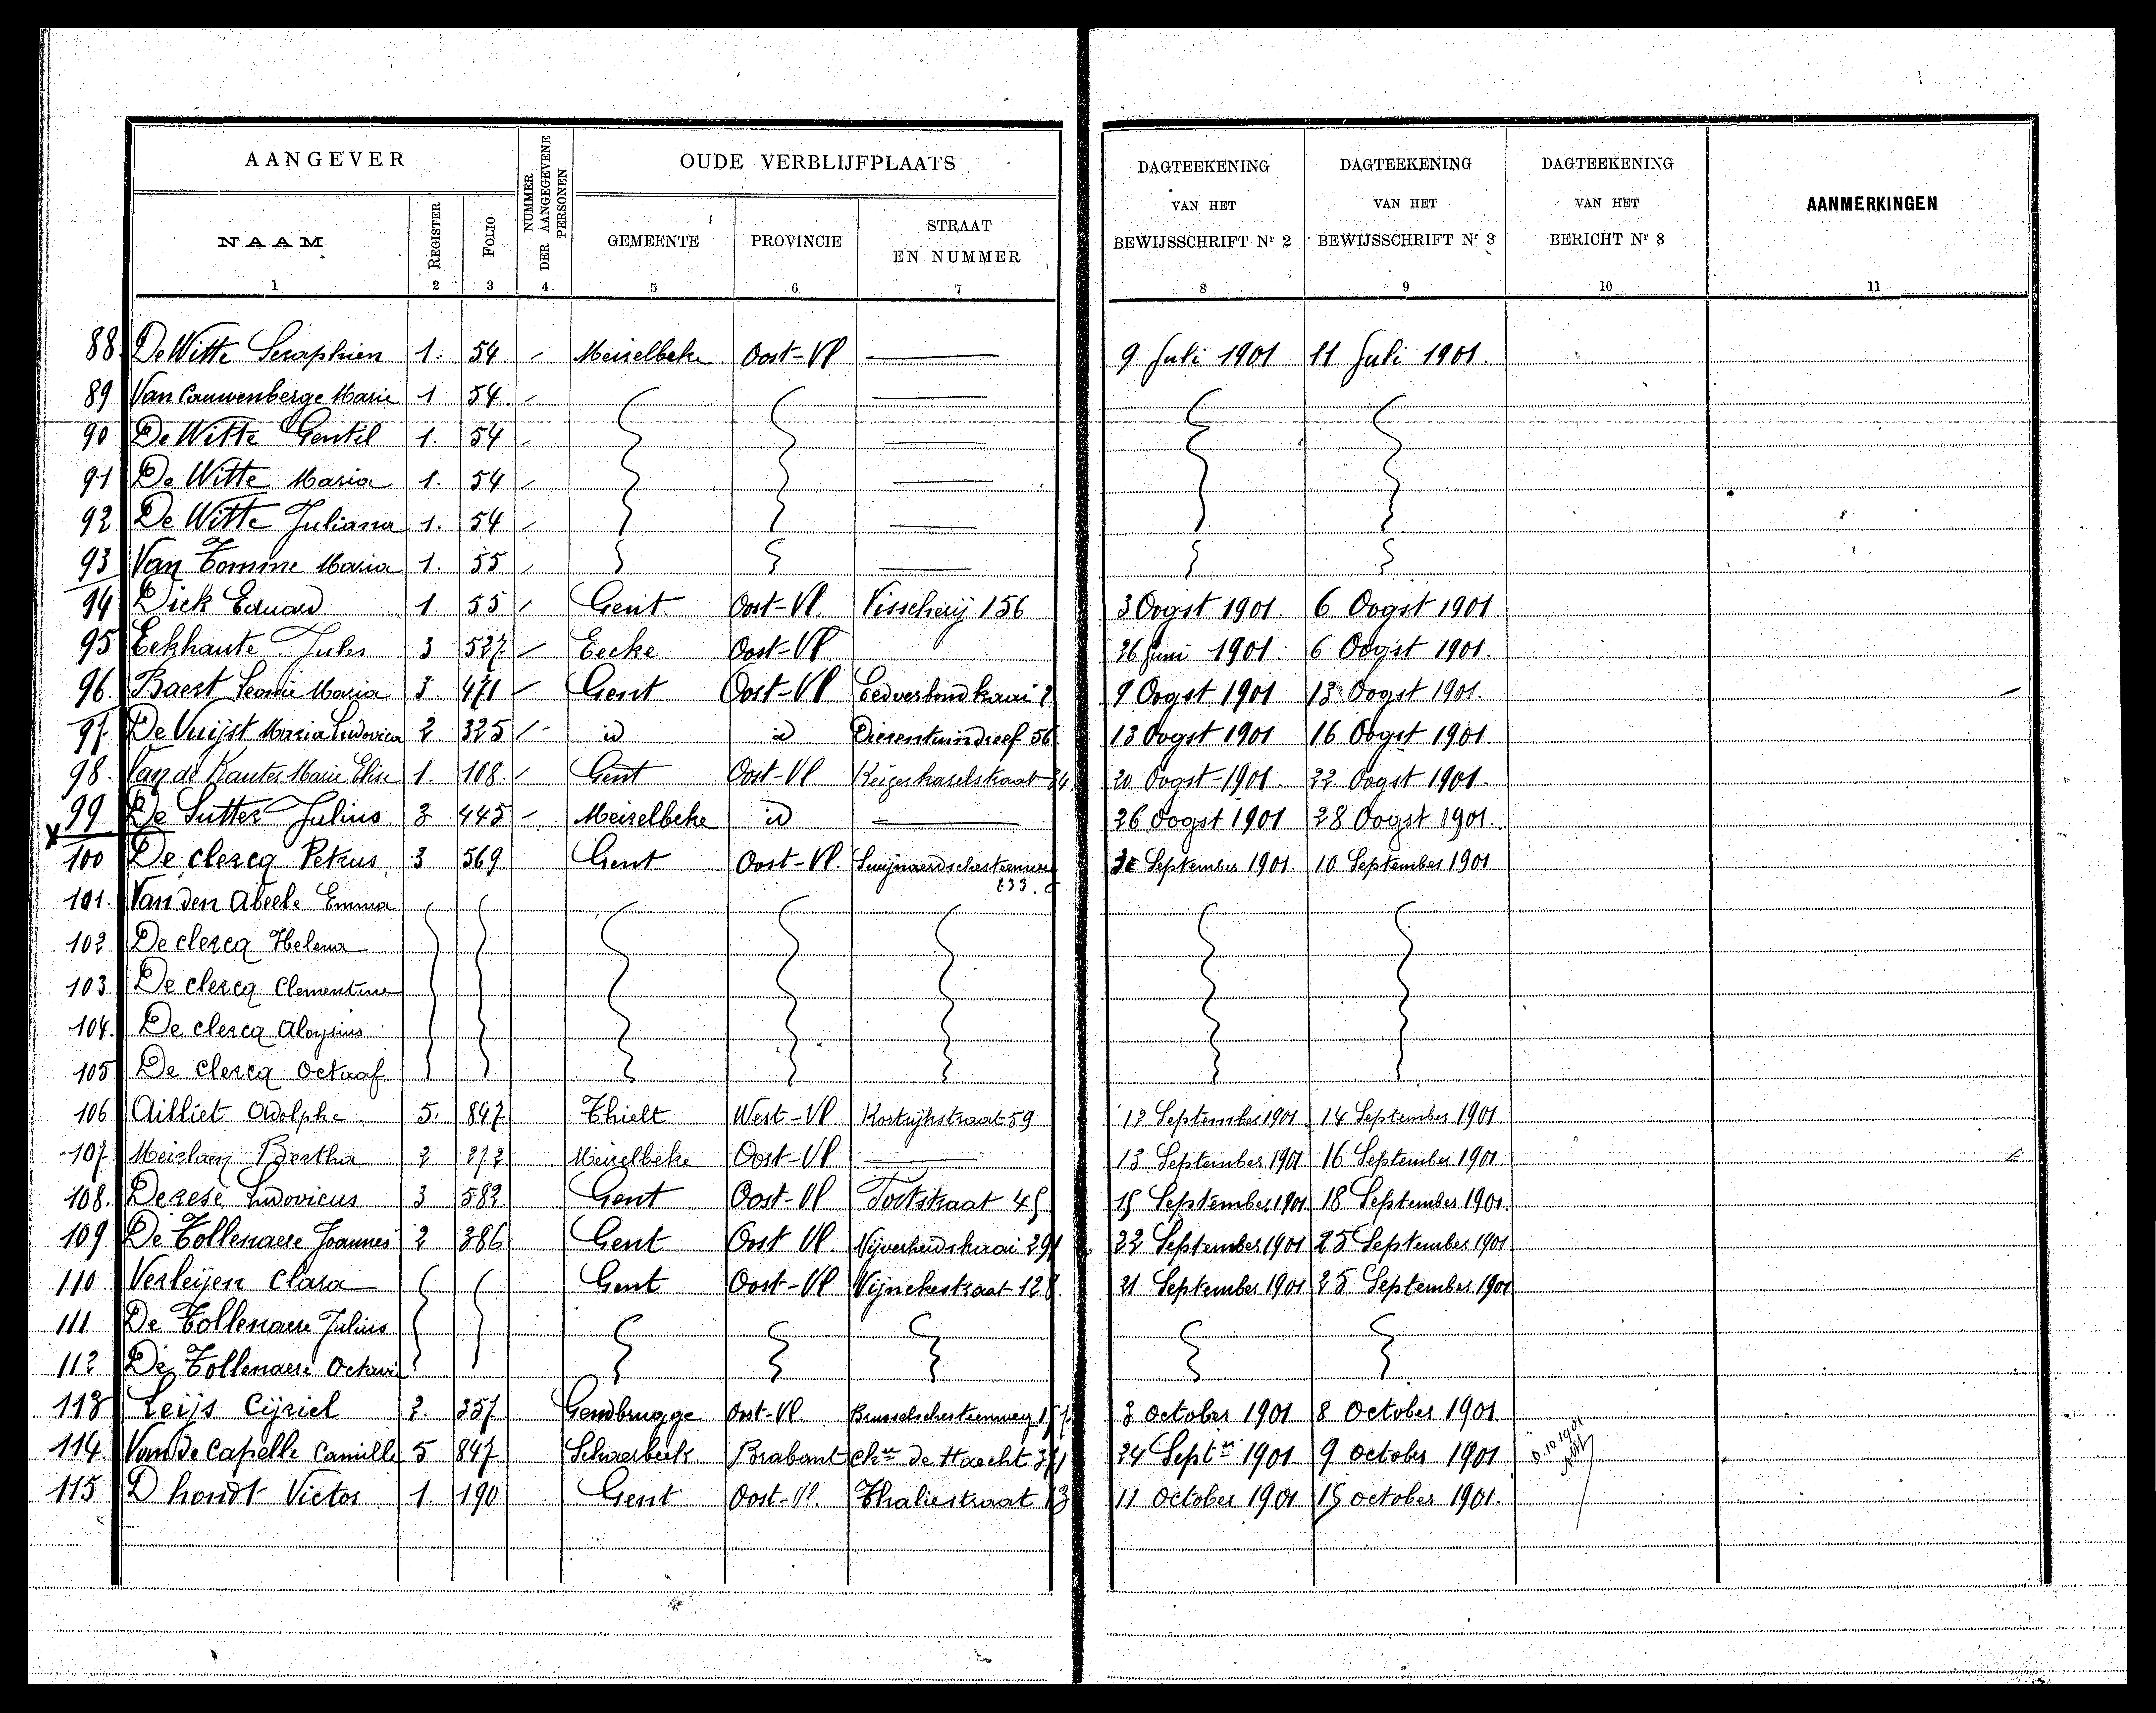 AANGEVER
NUMMER DER AANGEGEVENE PERSONEN
OUDE VERBLIJFPLAATS
DAGTEEKENING VAN HET BEWIJSSCHRIFT Nr 2
DAGTEEKENING VAN HET BEWIJSSCHRIFT Nr 3
DAGTEEKENING VAN HET BERICHT Nr 8
AANMERKINGEN
NAAM
REGISTER
FOLIO
GEMEENTE
PROVINCIE
STRAAT EN NUMMER
1 2 3 4 5 6 7 8 9 10 11
88 De Witte Seraphien 1. 54. Meirelbeke Oost-Vl 9 Juli 1901 11 Juli 1901.
89 Van Cauwenberge Marie 1 54.
90 De Witte Gentil 1. 54
91 De Witte Maria 1. 54
92 De Witte Juliana 1. 54
93 Van Tomme Maria 1. 55
94 Dick Eduard 1. 55 Gent. Oost-Vl. Visscherij 156 3 Oogst 1901. 6 Oogst 1901
95 Eekhaute Jules 3 527 Eecke Oost-Vl 26 Juni 1901. 6 Oogst 1901.
96. Baert Leonie Maria 3. 471 Gent Oost-Vl 9 Oogst 1901 13 Oogst 1901.
97. De Vuijst Maria Ludovica 2 325 id id Dierentuindreef 56 13 Oogst 1901 16 Oogst 1901.
98. Van de Kauter Marie Elise 1. 168. Gent Oost-Vl. 20 Oogst-1901. 22 Oogst 1901.
x 99 De Sutter Julius 3 445 Meirelbeke id 26 Oogst 1901 28 Oogst 1901.
100 De clercq Petrus 3 569 Gent Oost-Vl. Swijnaerdschesteenweg September 1901. 10 September 1901.
233.
101. Van den Abeele Emma
102 De clercq Helena
103 De clercq Clementine
104. De clercq Aloysius
105 De clercq Octaaf
106 Ailliet Adolphe 5. 847 Thielt West-Vl Kortrijkstraat 59 12 September 1901 14 September 1901
107. Meirlaen Bertha 2 272 Meirelbeke Oost-Vl 13 September 1901 16 September 1901
108. Derese Ludovicus 3 582 Gent Oost-Vl 15 September 1901 18 September 1901.
109 De Tollenaere Joannes 2 386 Gent Oost Vl. Nijverheidskaai 291 22 September 1901 25 September 1901
110 Verleijen Clara Gent Oost-Vl Wijnekestraat 128. 21 September 1901 25 September 1901
111 De Tollenaere Julius
112 De Tollenaere Octavie
113 Leijs Cijriel 2. 357 Gendbrugge Oost-Vl. Brusselschesteenweg 3 October 1901 8 October 1901.
114. Van de Capelle Camille 5 847 Schaerbeek Brabant chee de Haecht 24 Septer 1901 9 october 1901
115 D hondt Victor 1. 190 Gent Oost-Vl. Thaliestraat 13 11 October 1901 15 october 1901.